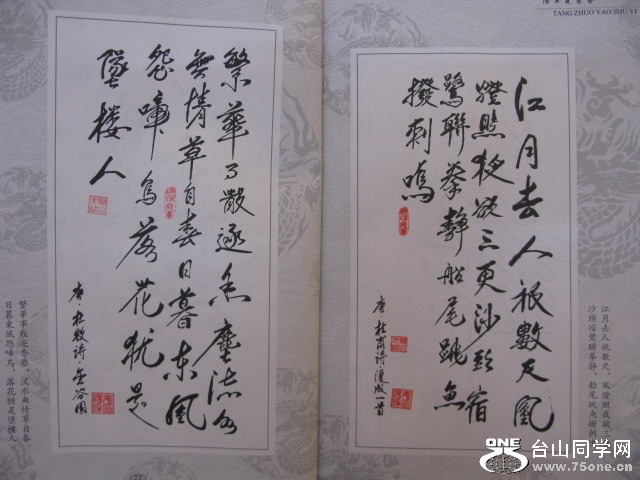 繁華事散逐香塵流水
無情草自春日暮東風
怨啼鳥落花猶是
墜楼人
唐·杜牧詩·金谷園
繁華事散逐香塵，流水無情草自春
日暮東風怨啼鳥，落花猶是墜樓人
TANG ZHUO YAO SHU YI
江月去人祇數尺風
燈照夜欲三更沙頭宿
鷺聯拳靜船尾跳魚
撥刺鳴
唐·杜甫詩漫成一首
江月去人祇數尺，風燈照夜欲三
沙頭宿鷺聯拳靜，船尾跳魚撥刺
ONE
台山同学网
www.75one.cn